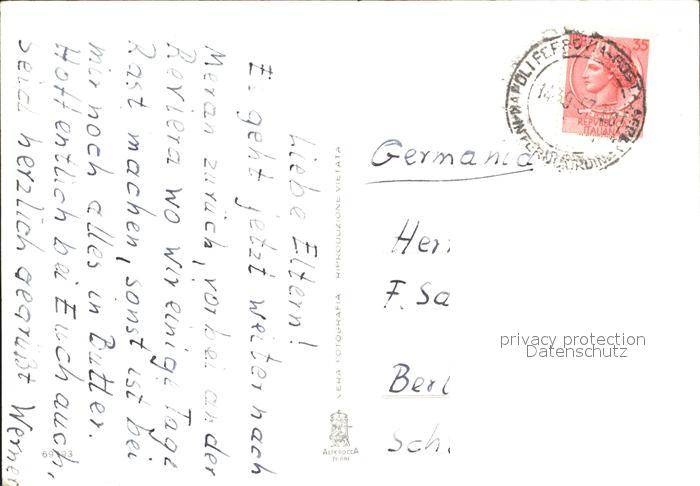 Liebe Eltern!
Es geht jetzt weiter nach
Meran zurück, vorbei an der
Reviera wo wir einige Tage
Rast machen, sonst ist bei
mir noch alles in Butter.
Hoffentlich bei Euch auch,
Seid herzlich gegrüßt Werner
VERA FOTOGRAFIA RIPRODUZIONE VIETATA
ALTEROCCA
TERNI
35
REPUBBLICA
ITALIANA
NAPOLI FERROVIA-POSTA
Germania
Herr
F. Sa
Berl
Sch
privacy protection
Datenschutz